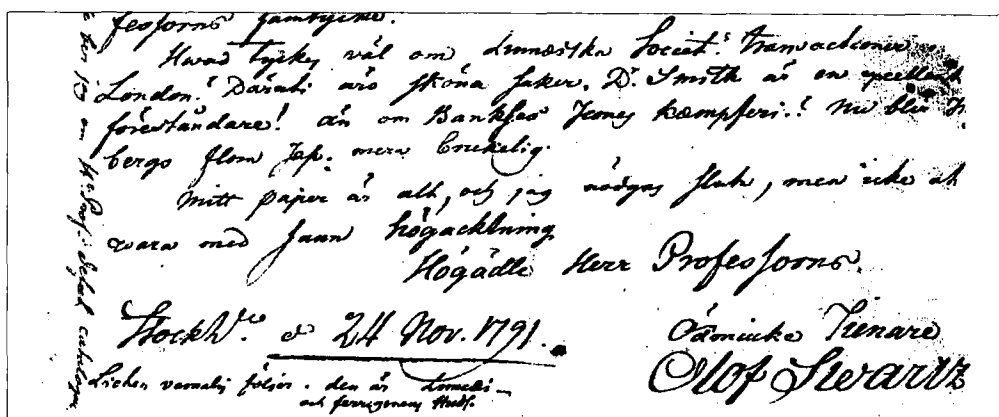 fessorns samtycke.
Hwad tyckes wäl om Linnæiska Societ: Transactioner
London? Däruti äro sköna saker. D. Smith är en excellent
föreståndare! än om Bankses Icones Kæmpferi.! Nu blir
bergs Flora Jap. mera brukelig.
Mitt paper är alt, och jag nödgas sluta, men icke at
wara med sann högacktning
Högädle Herr Professorns.
Stockh. d 24 Nov. 1791.
Ödmiuke Tienare
Olof Swartz
Lichen vernalis följer. den är Linnæi
och ferrugineus Huds.